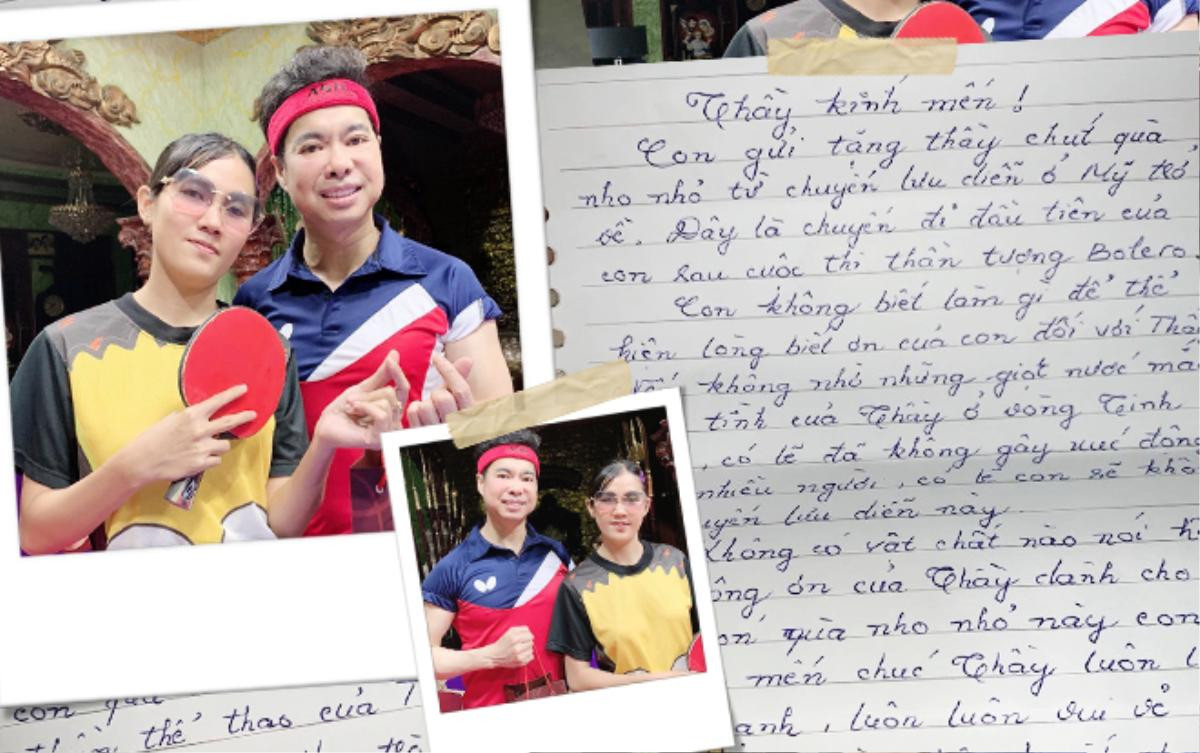 Thầy kính mến !
Con gửi tặng thầy chút quà
nho nhỏ từ chuyến lưu diễn ở Mỹ trở
về. Đây là chuyến đi đầu tiên của
con sau cuộc thi thần tượng Bolero.
Con không biết làm gì để thể
hiện lòng biết ơn của con đối với Thầ
không nhờ những giọt nước mắ
tình của Thầy ở vòng Tinh
, có lẽ đã không gây xúc động
nhiều người, có lẽ con sẽ khô
uyến lưu diễn này.
Không có vật chất nào nói h
ông ơn của Thầy dành cho
ón quà nho nhỏ này con
mến chúc Thầy luôn l
ạnh, luôn luôn vui vẻ
con
thể thao của T